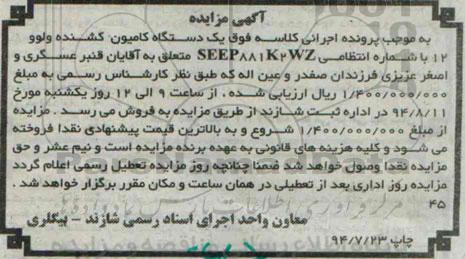 آگهی مزایده
به موجب پرونده اجرائی کلاسه فوق یک دستگاه کامیون: کشنده ولوو
۱۲ با شماره انتظامی SEEP۸۸۱K۲WZ متعلق به آقایان قنبر عسگری و
اصغر عزیزی فرزندان صفدر و عین اله که طبق نظر کارشناس رسمی به مبلغ
۱/۴۰۰/۰۰۰/۰۰۰ ریال ارزیابی شده ، از ساعت ۹ الی ۱۲ روز یکشنبه مورخ
۹۴/۸/۱۱ در اداره ثبت شازند از طریق مزایده به فروش می رسد . مزایده
از مبلغ ۱/۴۰۰/۰۰۰/۰۰۰ شروع و به بالاترین قیمت پیشنهادی نقدا فروخته
می شود و کلیه هزینه های قانونی به عهده برنده مزایده است و نیم عشر و حق
مزایده نقدا وصول خواهد شد ضمنا چنانچه روز مزایده تعطیل رسمی اعلام گردد
مزایده روز اداری بعد از تعطیلی در همان ساعت و مکان مقرر برگزار خواهد شد .
۴۵
معاون واحد اجرای اسناد رسمی شازند - بیگلری
چاپ ۹۴/۷/۲۳